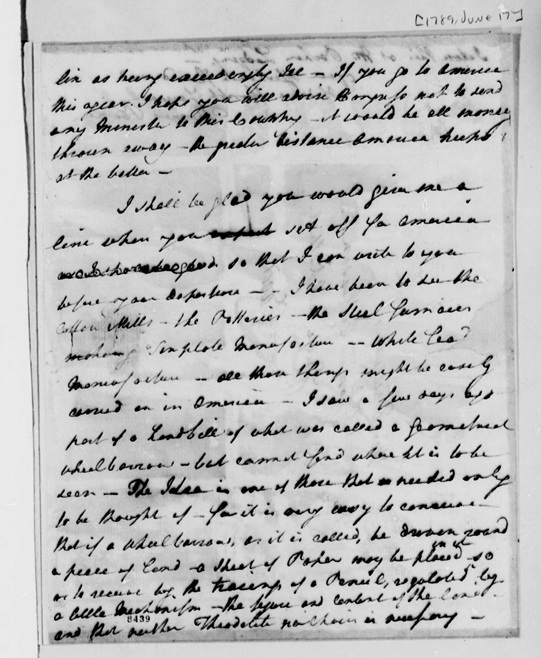 [1789, June 17]
lin as being exceedingly Ill – If you go to America
this year I hope you will advise Congress not to send
any Minister to this Country – it would be all money
thrown away – the greater distance America keeps
at the better –
I shall be glad you would give me a
line when you set off for America
so that I can write to you
before your departure – – I have been to see the
Cotton Mills – the Potteries – the Steel Furnaces
making Tinplate Manufacture – – White Lead
Manufacture – all those things might be easily
carried on in America – I saw a few days ago
part of a Handbill of what was called a geometrical
wheelbarrow – but cannot find where it is to be
seen – The Idea is one of those that needed only
to be thought of – for it is very easy to conceive –
that if a wheelbarrow, as it is called, be driven round
a piece of Land – a sheet of Paper may be placed in it so
as to receive by the tracings of a Pencil, regulated by
a little Mechanism – the figure and content of the Land –
and that neither Theodolite nor Chain is necessary –
8439